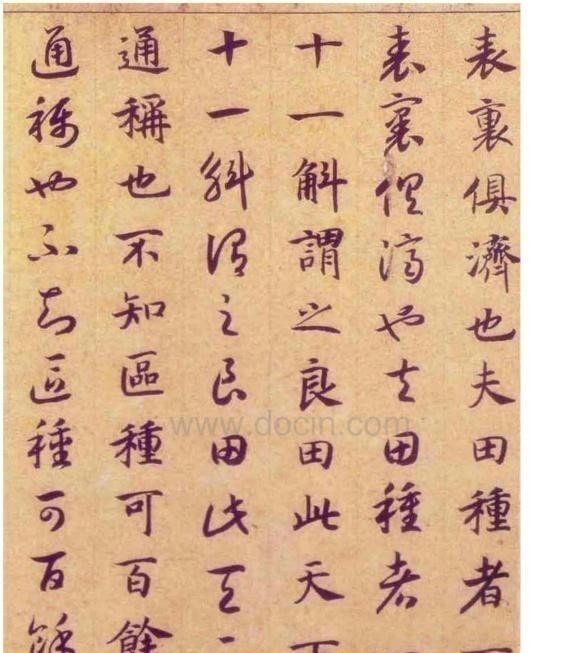 表裏俱濟也夫田種者
表裏俱濟也夫田種者
十一斛謂之良田此天
十一斛謂之良田此天
通稱也不知區種可百餘
通稱也不知區種可百餘
www.docin.com